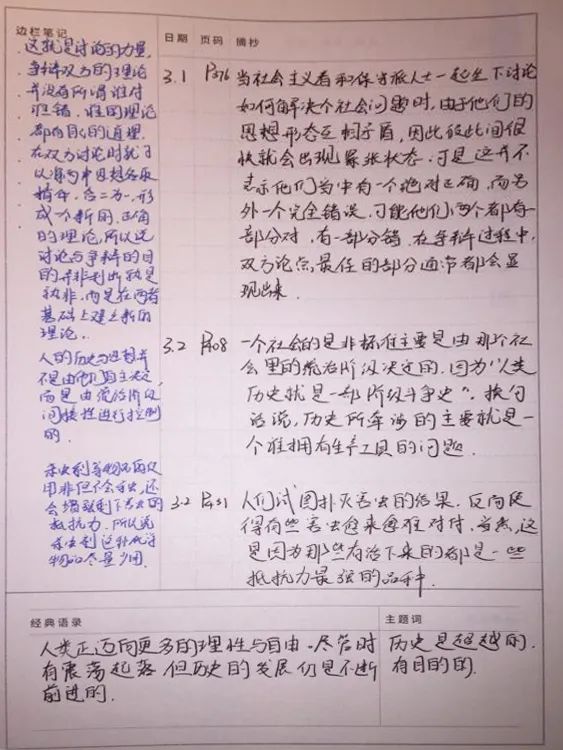 边栏笔记
这就是讨论的力量,
争辩双方的理论
并没有所谓谁对
谁错,谁的理论
都有自己的道理.
在双方讨论时就可
以将两中思想各取
精华,合二为一,形
成一个新的、正确
的理论,所以说
讨论与争辩的目
的并非判断孰是
孰非,而是在两者
基础上建立新的
理论.
人的历史与思想并
不是由他们自主决定,
而是由统治阶级
间接性进行控制
的.
杀虫剂等物品的使
用非但不会害虫,还
会增强剩下害虫的
抵抗力,所以说
杀虫剂这种化学
物品尽量少用.
日期 页码 摘抄
3.1 P376 当社会主义者和保守派人士一起坐下讨论
如何解决个社会问题时,由于他们的
思想形态互相矛盾,因此彼此间很
快就会出现紧张状态.可是这并不
表示他们当中有一个绝对正确,而另
外一个完全错误.可能他们两个都有一
部分对,有一部分错.在争辩过程中,
双方论点最佳的部分通常都会显
现出来.
3.2 P408 一个社会的是非标准主要是由那个社
会里的统治阶级决定的.因为“人类
历史就是一部阶级斗争史”.换句
话说,历史所牵涉的主要就是一
个谁拥有生产工具的问题.
3.2 P431 人们试图扑灭害虫的结果,反而使
得有些害虫愈来愈难对付.当然,这
是因为那些存活下来的都是一些
抵抗力最强的品种.
经典语录
人类正迈向更多的理性与自由.尽管时
有震荡起落,但历史的发展仍是不断
前进的.
主题词
历史是超越的,
有目的的.